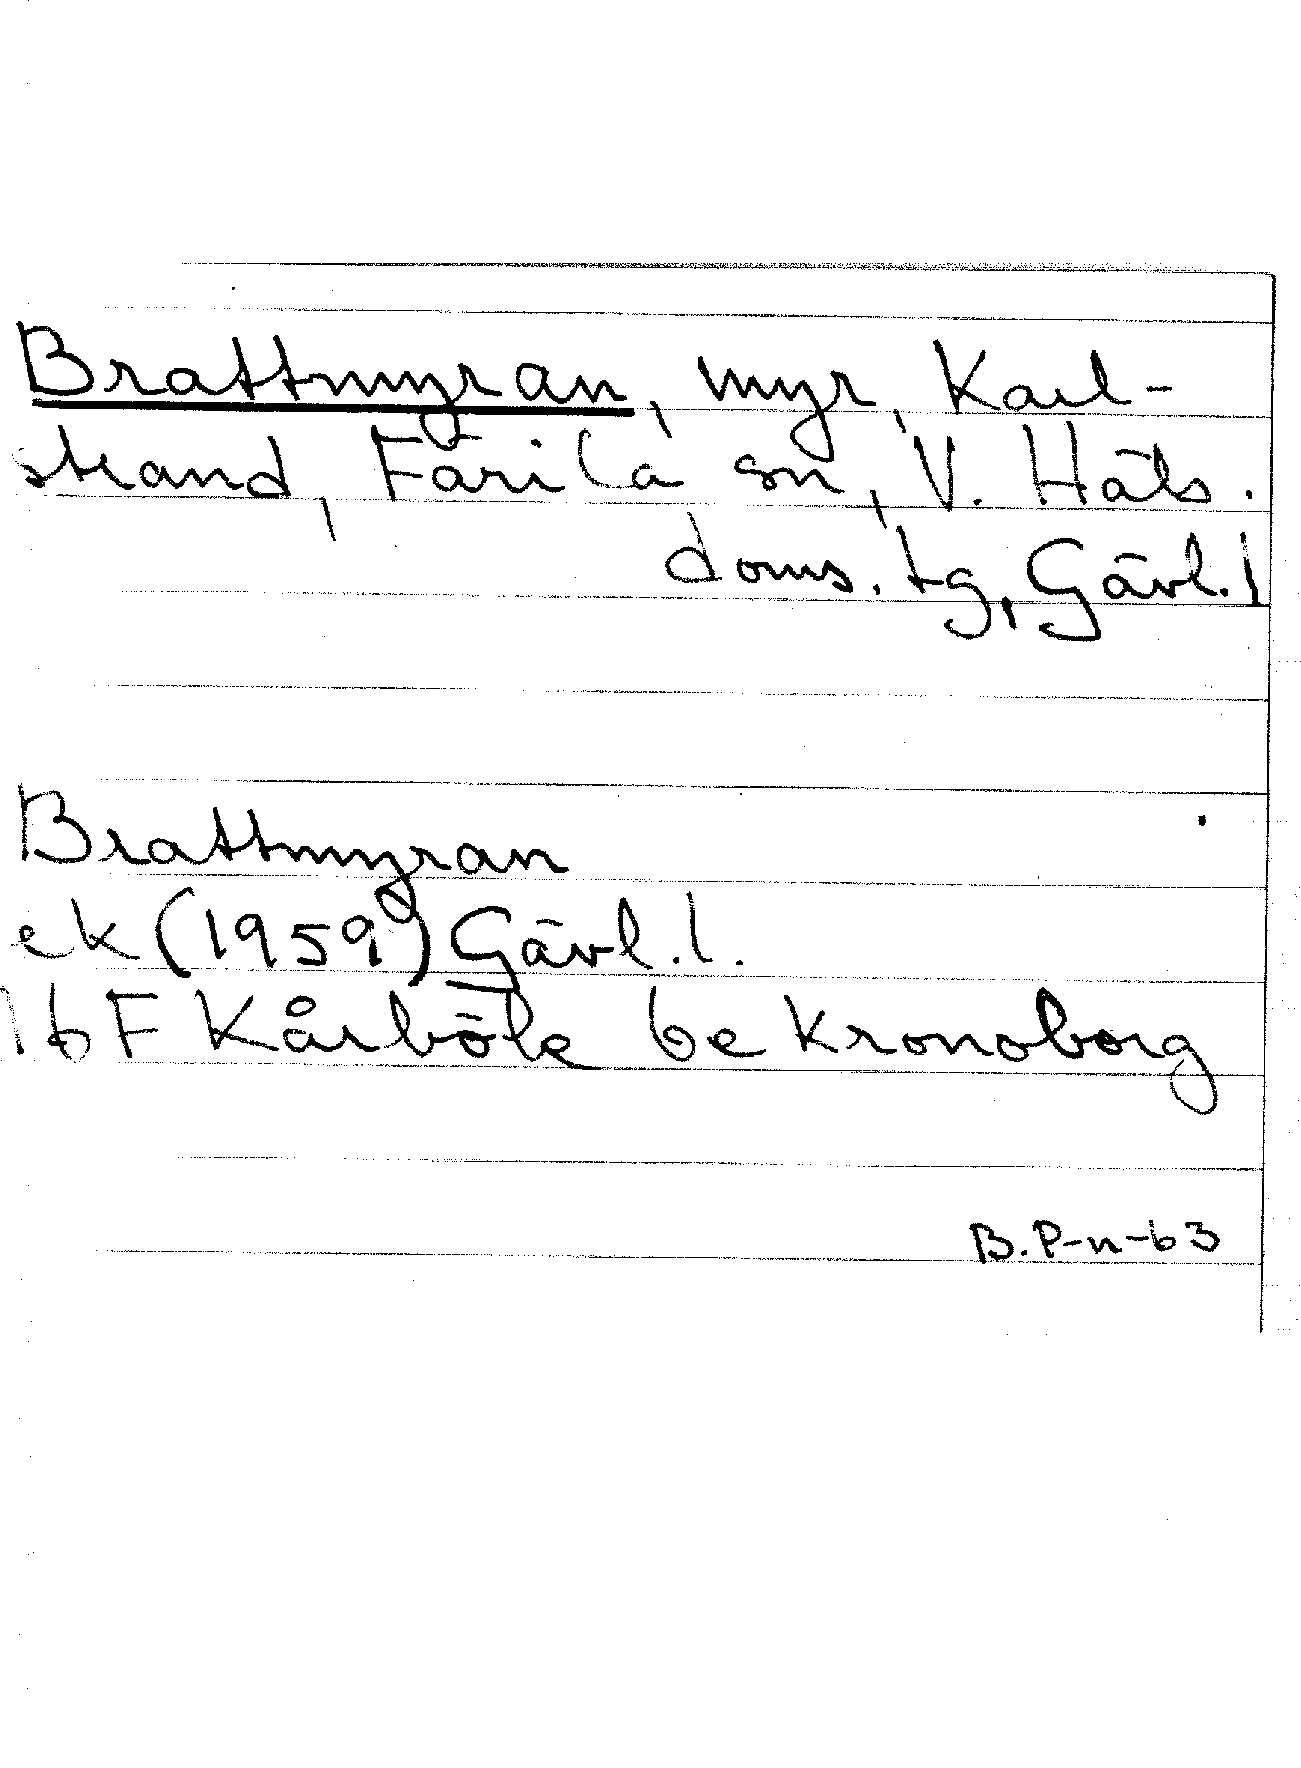 Brattmyran, myr, Karl-
strand, Färila sn, V. Häls.
doms. tg, Gävl. l
Brattmyran
ek (1959) Gävl. l.
16 F Kårböle 6e Kronoborg
B. P-n-63